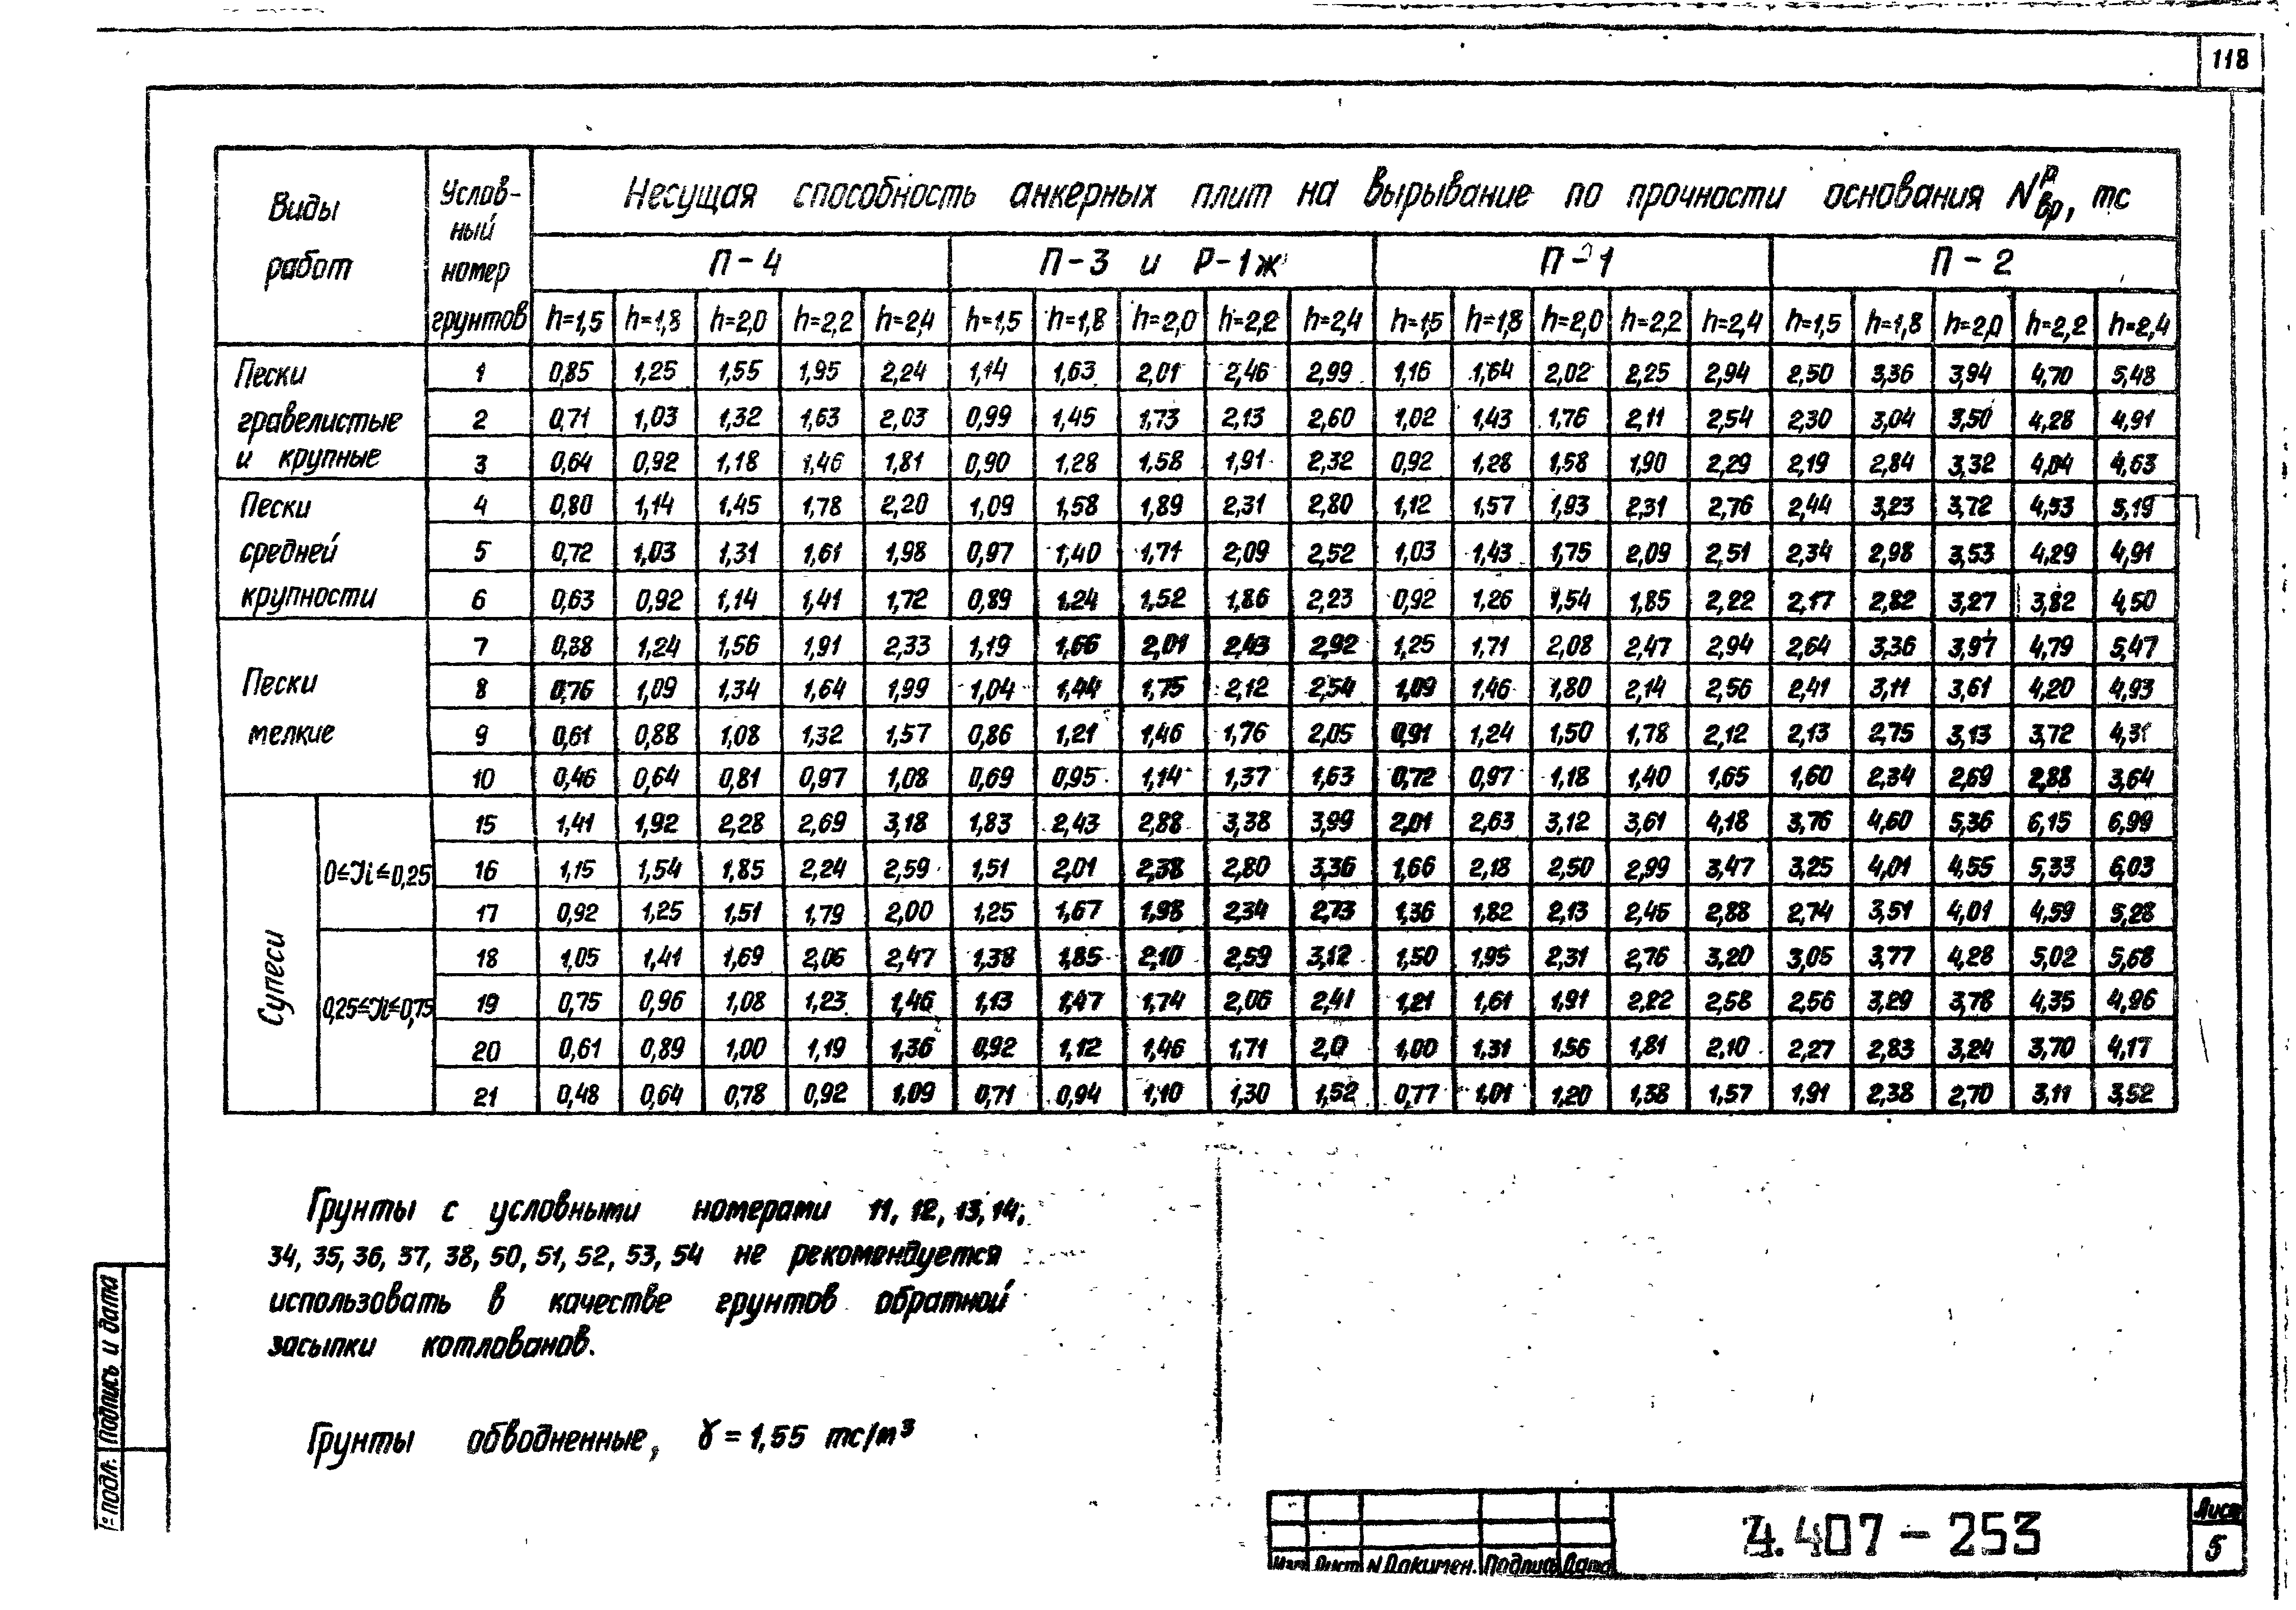 118
Виды работ
Условный номер грунтов
Несущая способность анкерных плит на вырывание по прочности основания Nᵖвр, тс
П-4 П-3 и Р-1ж П-1 П-2
h=1,5 h=1,8 h=2,0 h=2,2 h=2,4 h=1,5 h=1,8 h=2,0 h=2,2 h=2,4 h=1,5 h=1,8 h=2,0 h=2,2 h=2,4 h=1,5 h=1,8 h=2,0 h=2,2 h=2,4
Пески гравелистые и крупные
1 0,85 1,25 1,55 1,95 2,24 1,14 1,63 2,01 2,46 2,99 1,16 1,64 2,02 2,25 2,94 2,50 3,36 3,94 4,70 5,48
2 0,71 1,03 1,32 1,63 2,03 0,99 1,45 1,73 2,13 2,60 1,02 1,43 1,76 2,11 2,54 2,30 3,04 3,50 4,28 4,91
3 0,64 0,92 1,18 1,46 1,81 0,90 1,28 1,58 1,91 2,32 0,92 1,28 1,58 1,90 2,29 2,19 2,84 3,32 4,04 4,63
Пески средней крупности
4 0,80 1,14 1,45 1,78 2,20 1,09 1,58 1,89 2,31 2,80 1,12 1,57 1,93 2,31 2,76 2,44 3,23 3,72 4,53 5,19
5 0,72 1,03 1,31 1,61 1,98 0,97 1,40 1,71 2,09 2,52 1,03 1,43 1,75 2,09 2,51 2,34 2,98 3,53 4,29 4,91
6 0,63 0,92 1,14 1,41 1,72 0,89 1,24 1,52 1,86 2,23 0,92 1,26 1,54 1,85 2,22 2,17 2,82 3,27 3,82 4,50
Пески мелкие
7 0,88 1,24 1,56 1,91 2,33 1,19 1,66 2,01 2,43 2,92 1,25 1,71 2,08 2,47 2,94 2,64 3,36 3,97 4,79 5,47
8 0,76 1,09 1,34 1,64 1,99 1,04 1,44 1,75 2,12 2,54 1,09 1,46 1,80 2,14 2,56 2,41 3,11 3,61 4,20 4,93
9 0,61 0,88 1,08 1,32 1,57 0,86 1,21 1,46 1,76 2,05 0,91 1,24 1,50 1,78 2,12 2,13 2,75 3,13 3,72 4,31
10 0,46 0,64 0,81 0,97 1,08 0,69 0,95 1,14 1,37 1,63 0,72 0,97 1,18 1,40 1,65 1,60 2,34 2,69 2,88 3,64
Супеси
0≤Ji≤0,25
15 1,41 1,92 2,28 2,69 3,18 1,83 2,43 2,88 3,38 3,99 2,01 2,63 3,12 3,61 4,18 3,76 4,60 5,36 6,15 6,99
16 1,15 1,54 1,85 2,24 2,59 1,51 2,01 2,38 2,80 3,36 1,66 2,18 2,50 2,99 3,47 3,25 4,01 4,55 5,33 6,03
17 0,92 1,25 1,51 1,79 2,00 1,25 1,67 1,98 2,34 2,73 1,36 1,82 2,13 2,45 2,88 2,74 3,51 4,01 4,59 5,28
0,25≤Ji≤0,75
18 1,05 1,41 1,69 2,06 2,47 1,38 1,85 2,10 2,59 3,12 1,50 1,95 2,31 2,76 3,20 3,05 3,77 4,28 5,02 5,68
19 0,75 0,96 1,08 1,23 1,46 1,13 1,47 1,74 2,06 2,41 1,21 1,61 1,91 2,22 2,58 2,56 3,29 3,78 4,35 4,96
20 0,61 0,89 1,00 1,19 1,36 0,92 1,12 1,46 1,71 2,0 1,00 1,31 1,56 1,81 2,10 2,27 2,83 3,24 3,70 4,17
21 0,48 0,64 0,78 0,92 1,09 0,71 0,94 1,10 1,30 1,52 0,77 1,01 1,20 1,38 1,57 1,91 2,38 2,70 3,11 3,52
Грунты с условными номерами 11, 12, 13, 14,
34, 35, 36, 37, 38, 50, 51, 52, 53, 54 не рекомендуется
использовать в качестве грунтов обратной
засыпки котлованов.
Грунты обводненные, γ = 1,55 тс/м³
№ подл. Подпись и дата
Изм Лист N Докумен. Подпись Дата
3.407-253
Лист
5